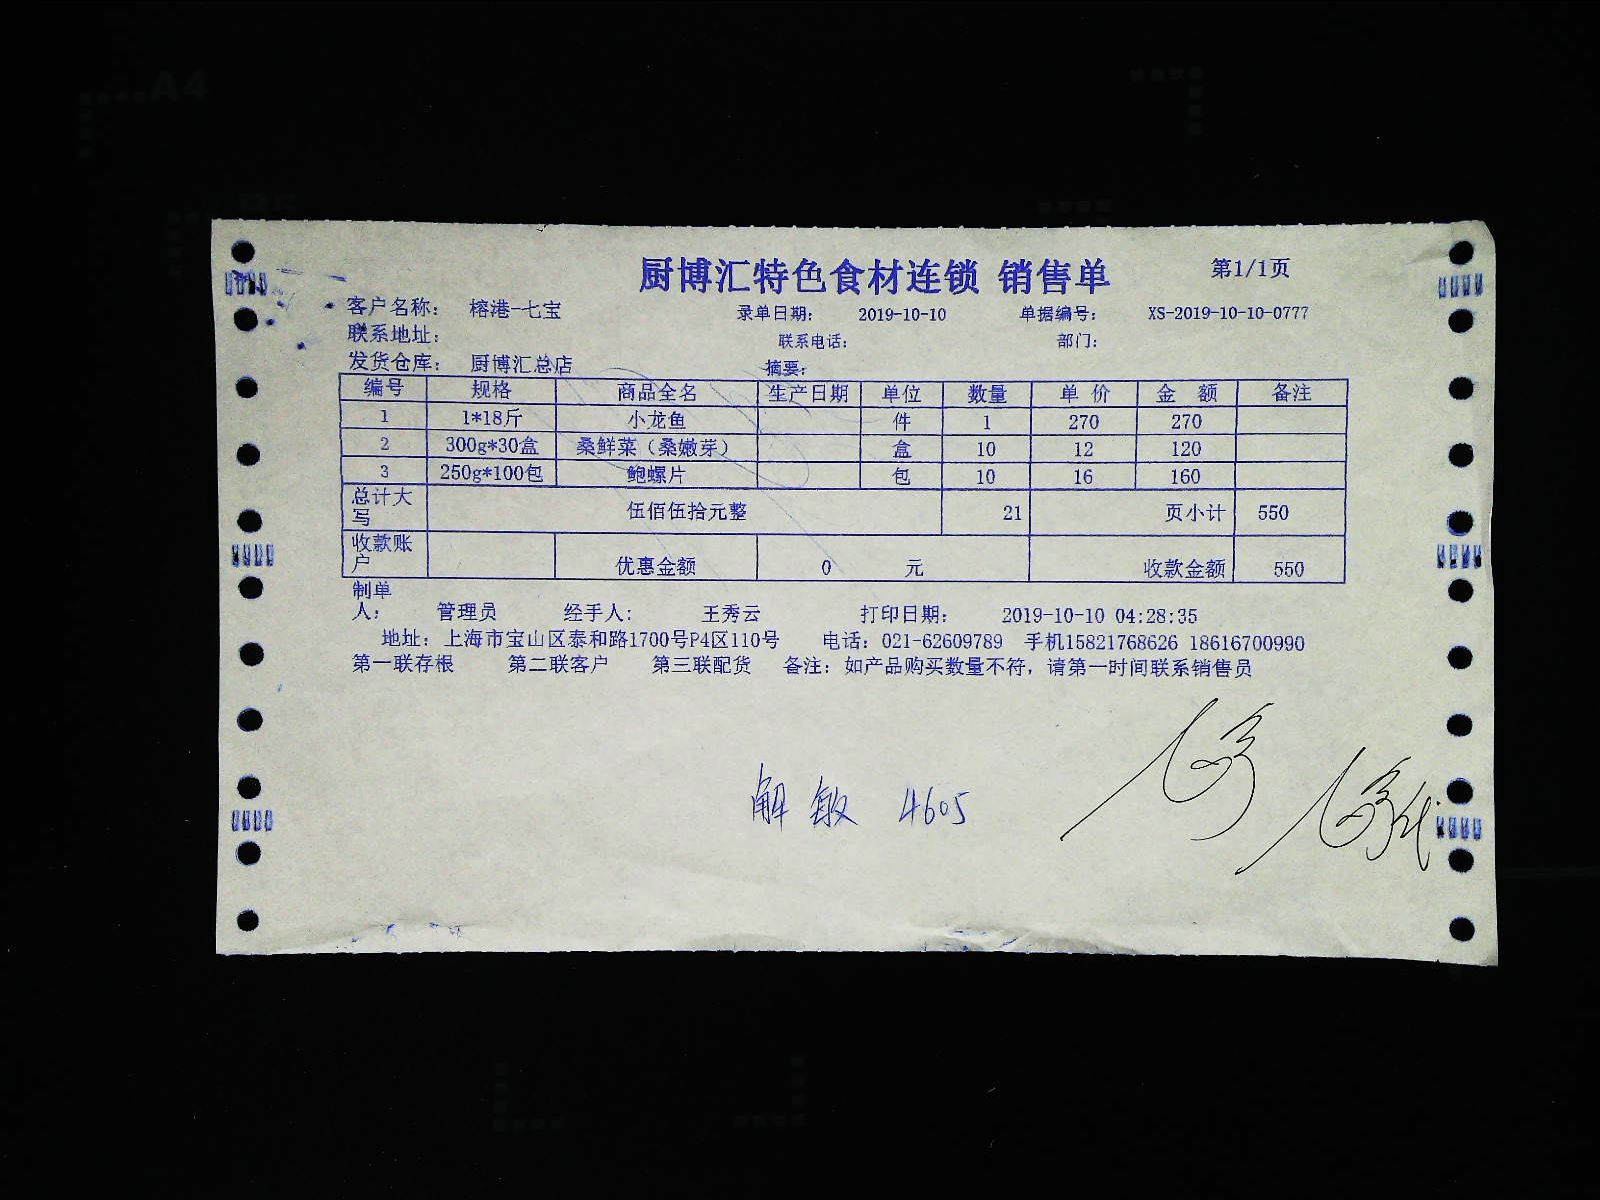 厨博汇特色食材连锁 销售单 第1/1页
客户名称： 榕港-七宝 录单日期： 2019-10-10 单据编号： XS-2019-10-10-0777
联系地址： 联系电话： 部门：
发货仓库： 厨博汇总店 摘要：
编号 规格 商品全名 生产日期 单位 数量 单 价 金 额 备注
1 1*18斤 小龙鱼 件 1 270 270
2 300g*30盒 桑鲜菜（桑嫩芽） 盒 10 12 120
3 250g*100包 鲍螺片 包 10 16 160
总计大写 伍佰伍拾元整 21 页小计 550
收款账户 优惠金额 0 元 收款金额 550
制单人： 管理员 经手人： 王秀云 打印日期： 2019-10-10 04:28:35
地址：上海市宝山区泰和路1700号P4区110号 电话：021-62609789 手机15821768626 18616700990
第一联存根 第二联客户 第三联配货 备注：如产品购买数量不符，请第一时间联系销售员
解敏 4605